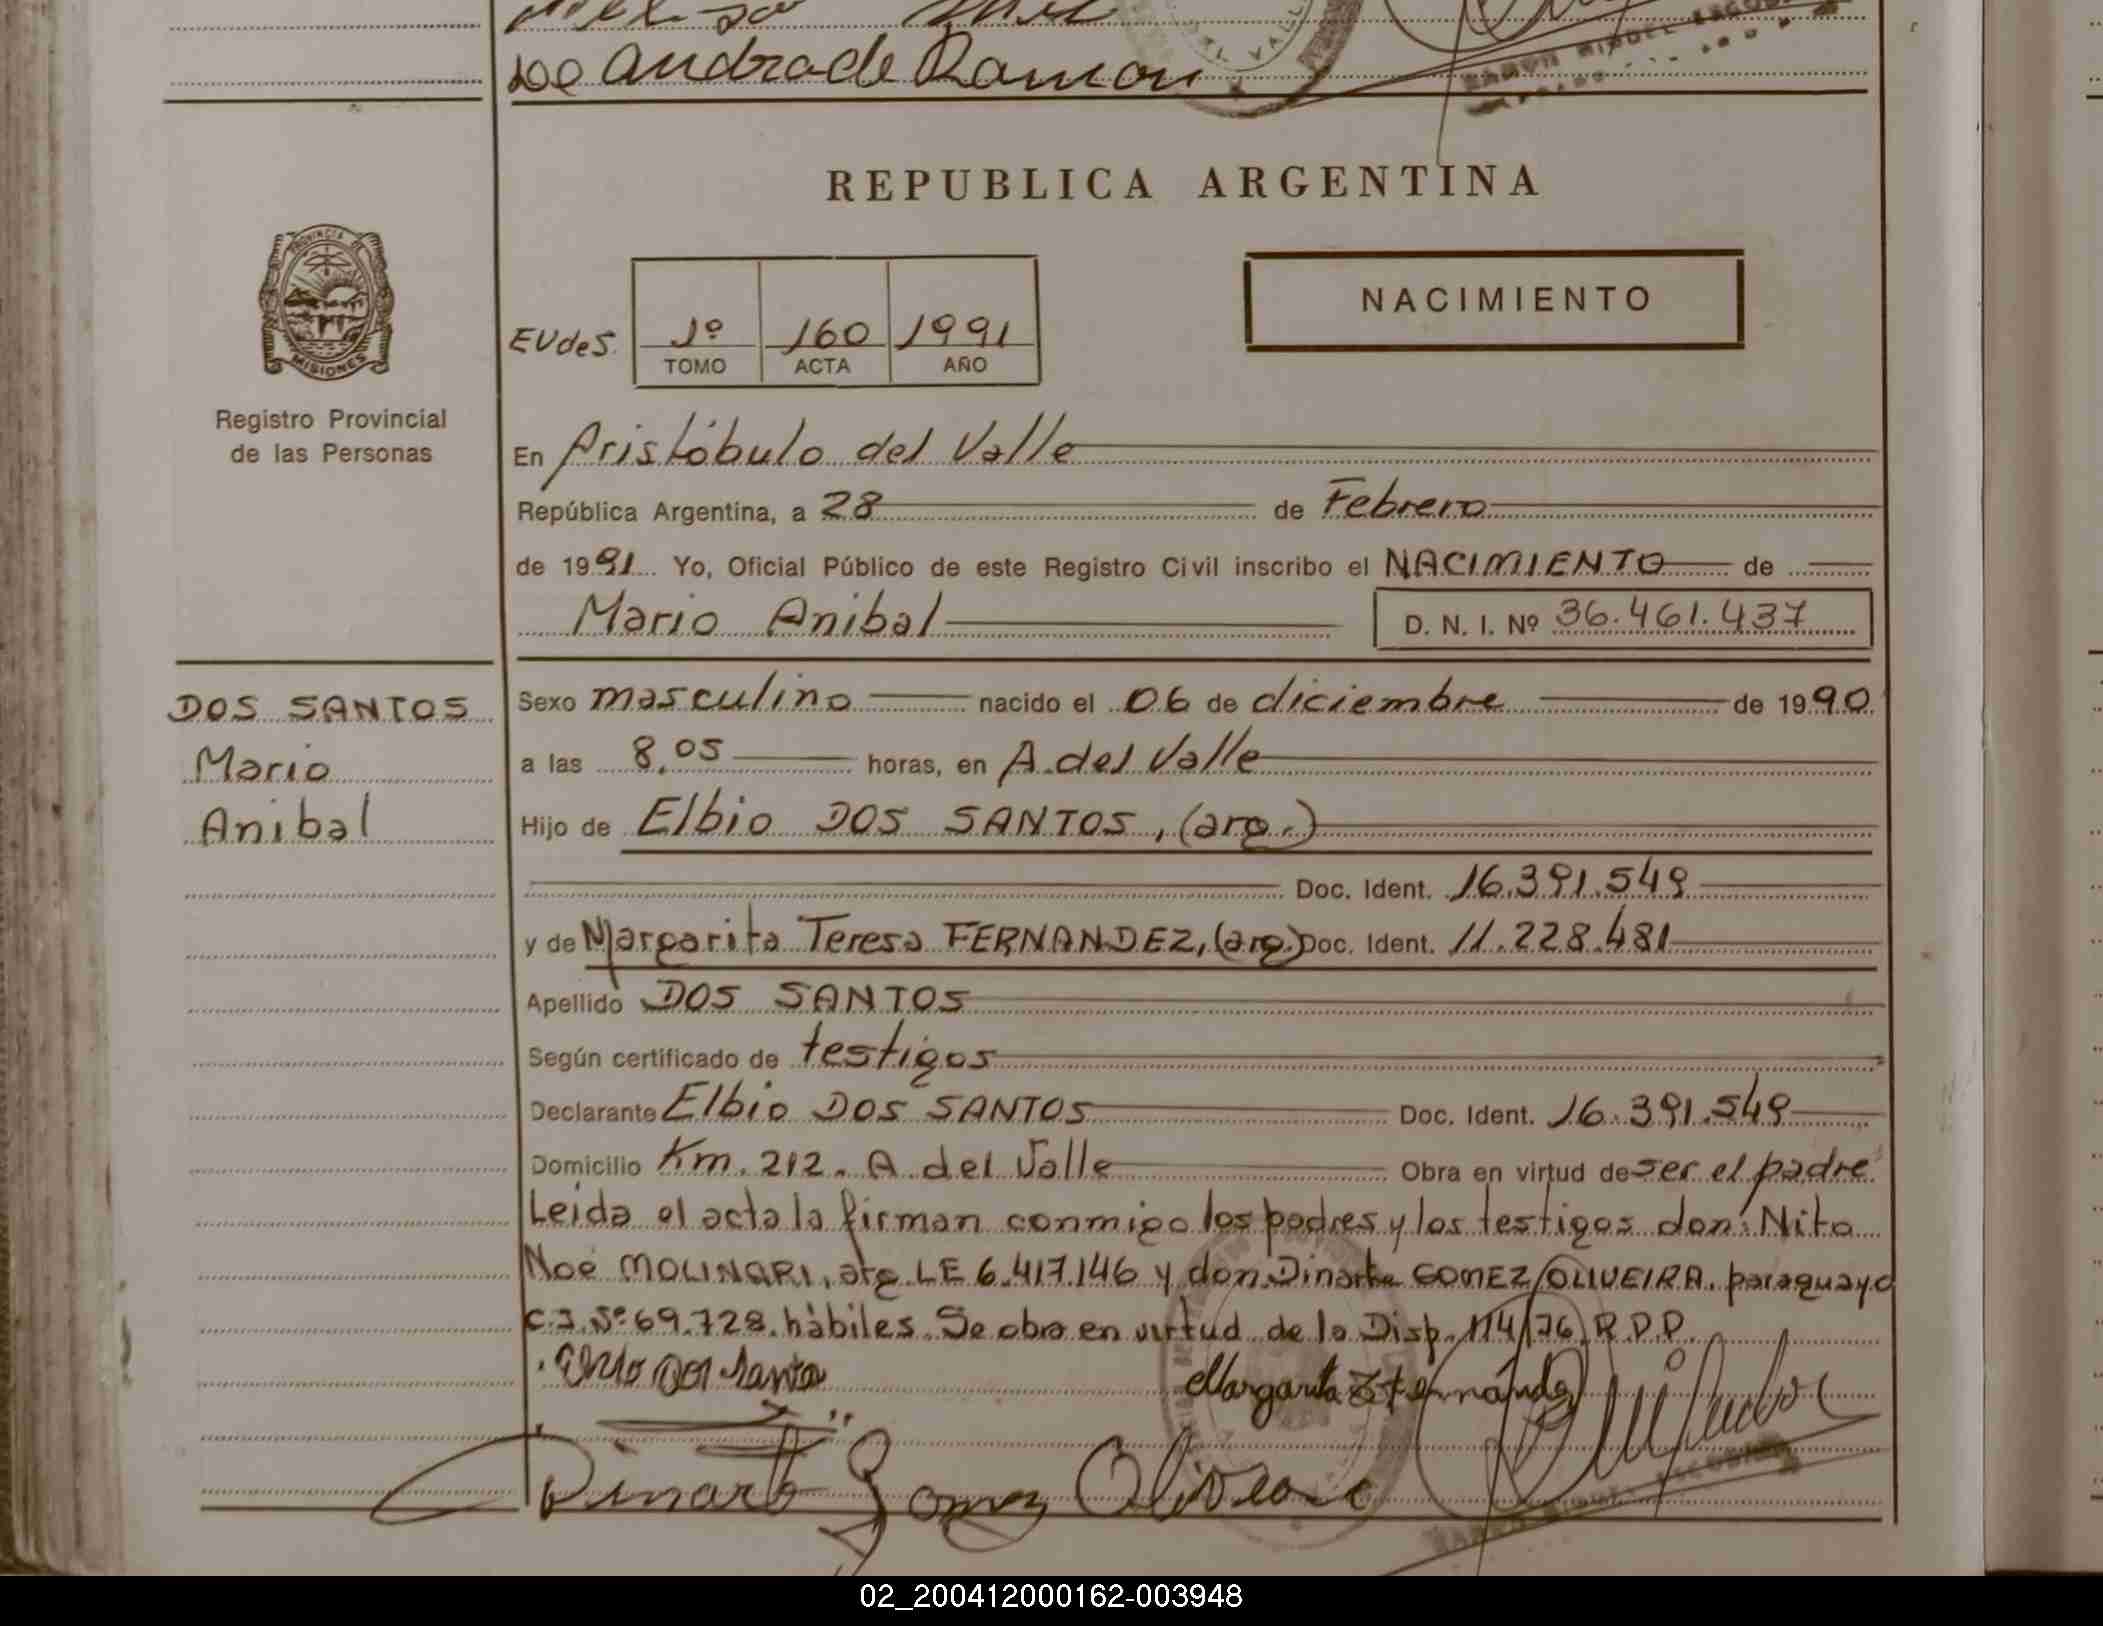 De Andrade Ramon
REPUBLICA ARGENTINA
PROVINCIA DE
MISIONES
Registro Provincial
de las Personas
EVdeS.
1º 160 1991
TOMO ACTA AÑO
NACIMIENTO
En Aristóbulo del Valle
República Argentina, a 28 de Febrero
de 1991 Yo, Oficial Público de este Registro Civil inscribo el NACIMIENTO de
Mario Anibal D. N. I. Nº 36.461.437
DOS SANTOS
Mario
Anibal
Sexo masculino nacido el 06 de diciembre de 1990
a las 8.05 horas, en A. del Valle
Hijo de Elbio DOS SANTOS, (arg.)
Doc. Ident. 16.391.549
y de Margarita Teresa FERNANDEZ, (arg.) Doc. Ident. 11.228.481
Apellido DOS SANTOS
Según certificado de testigos
Declarante Elbio DOS SANTOS Doc. Ident. 16.391.549
Domicilio Km. 212. A del Valle Obra en virtud de ser el padre
Leida el acta la firman conmigo los padres y los testigos don: Nito
Noé MOLINARI, arg. LE 6.417.146 y don Dinarte GOMEZ OLIVEIRA, paraguayo
C.I. Nº 69.728. hábiles. Se obra en virtud de la Disp. 114/76 R.P.P.
Elbio Dos Santo
Margarita T Fernández
Dinarte Gomez Oliveira
02_200412000162-003948